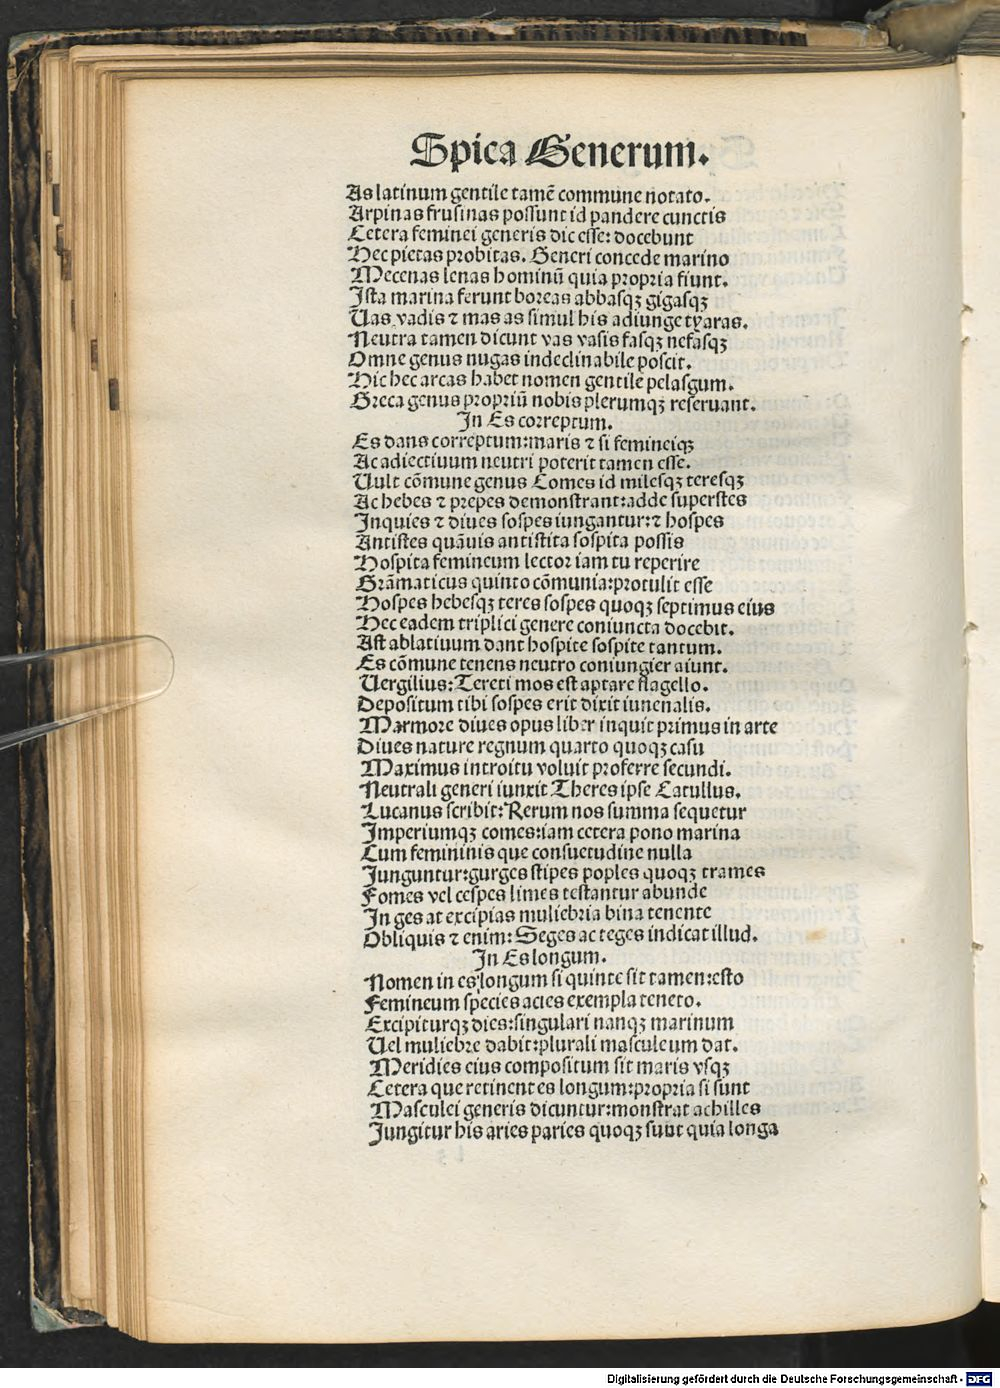 Spica Generum.
As latinum gentile tamē commune notato.
Arpinas frusinas possunt id pandere cunctis
Cetera feminei generis dic esse: docebunt
Hec pietas probitas. Generi concede marino
Mecenas lenas hominū quia propria fiunt.
Ista marina ferunt boreas abbasqꝫ gigasqꝫ
Uas, vadis ⁊ mas as simul his adiunge tyaras.
Neutra tamen dicunt vas vasis fasqꝫ nefasqꝫ
Omne genus nugas indeclinabile poscit.
Hic hec arcas habet nomen gentile pelasgum.
Greca genus propriū nobis plerumqꝫ reseruant.
In Es correptum.
Es dans correptum:maris ⁊ si femineiqꝫ
Ac adiectiuum neutri poterit tamen esse.
Uult cōmune genus Comes id milesqꝫ teresqꝫ
Ac hebes ⁊ prepes demonstrant:adde superstes
Inquies ⁊ diues sospes iungantur:⁊ hospes
Antistes quāuis antistita sospita possis
Hospita femineum lector iam tu reperire
Grāmaticus quinto cōmunia:protulit esse
Hospes hebesqꝫ teres sospes quoqꝫ septimus eius
Hec eadem triplici genere coniuncta docebit.
Ast ablatiuum dant hospite sospite tantum.
Es cōmune tenens neutro coniungier aiunt.
Uergilius:Tereti mos est aptare flagello.
Depositum tibi sospes erit dixit iuuenalis.
Marmore diues opus liber inquit primus in arte
Diues nature regnum quarto quoqꝫ casu
Maximus introitu voluit proferre secundi.
Neutrali generi iunxit Theres ipse Catullus.
Lucanus scribit:Rerum nos summa sequetur
Imperiumqꝫ comes:iam cetera pono marina
Cum femininis que consuetudine nulla
Junguntur:gurges stipes poples quoqꝫ trames
Fomes vel cespes limes testantur abunde
In ges at excipias muliebria bina tenente
Obliquis ⁊ enim:Seges ac teges indicat illud.
In Es longum.
Nomen in es longum si quinte sit tamen:esto
Femineum species acies exempla teneto.
Excipiturqꝫ dies:singulari nanqꝫ marinum
Uel muliebre dabit:plurali masculeum dat.
Meridies eius compositum sit maris vsqꝫ
Cetera que retinent es longum:propria si sunt
Masculei generis dicuntur:monstrat achilles
Jungitur his aries paries quoqꝫ sunt quia longa
Digitalisierung gefördert durch die Deutsche Forschungsgemeinschaft - DFG